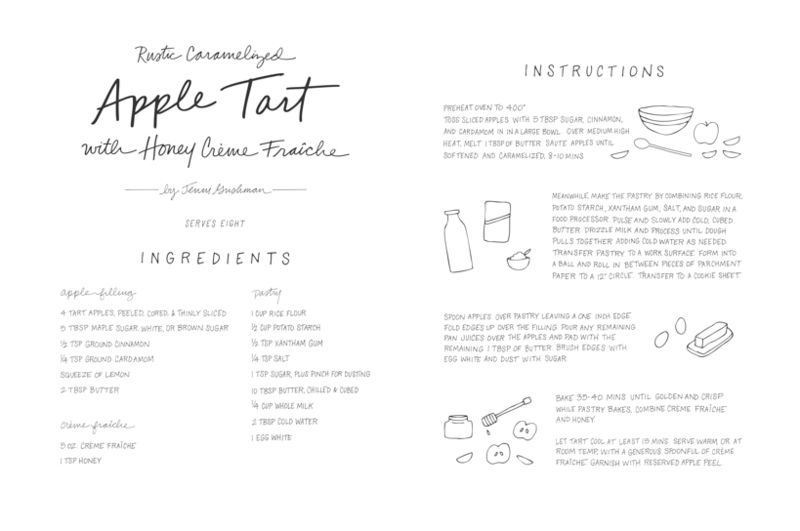 Rustic Caramelized
Apple Tart
with Honey Crème Fraîche
by Jenni Gushman
SERVES EIGHT
INGREDIENTS
apple filling
4 TART APPLES, PEELED, CORED, & THINLY SLICED
5 TBSP MAPLE SUGAR, WHITE, OR BROWN SUGAR
½ TSP GROUND CINNAMON
¼ TSP GROUND CARDAMOM
SQUEEZE OF LEMON
2 TBSP BUTTER
crème fraîche
5 OZ. CRÈME FRAÎCHE
1 TSP HONEY
pastry
1 CUP RICE FLOUR
½ CUP POTATO STARCH
½ TSP XANTHAM GUM
¼ TSP SALT
1 TSP SUGAR, PLUS PINCH FOR DUSTING
10 TBSP BUTTER, CHILLED & CUBED
¼ CUP WHOLE MILK
2 TBSP COLD WATER
1 EGG WHITE
INSTRUCTIONS
PREHEAT OVEN TO 400°
TOSS SLICED APPLES WITH 5 TBSP SUGAR, CINNAMON,
AND CARDAMOM IN IN A LARGE BOWL. OVER MEDIUM HIGH
HEAT, MELT 1 TBSP OF BUTTER. SAUTE APPLES UNTIL
SOFTENED AND CARAMELIZED, 8-10 MINS
MEANWHILE, MAKE THE PASTRY BY COMBINING RICE FLOUR,
POTATO STARCH, XANTHAM GUM, SALT, AND SUGAR IN A
FOOD PROCESSOR. PULSE AND SLOWLY ADD COLD, CUBED
BUTTER. DRIZZLE MILK AND PROCESS UNTIL DOUGH
PULLS TOGETHER ADDING COLD WATER AS NEEDED
TRANSFER PASTRY TO A WORK SURFACE. FORM INTO
A BALL AND ROLL IN BETWEEN PIECES OF PARCHMENT
PAPER TO A 12" CIRCLE. TRANSFER TO A COOKIE SHEET
SPOON APPLES OVER PASTRY LEAVING A ONE INCH EDGE.
FOLD EDGES UP OVER THE FILLING. POUR ANY REMAINING
PAN JUICES OVER THE APPLES AND PAD WITH THE
REMAINING 1 TBSP OF BUTTER. BRUSH EDGES WITH
EGG WHITE AND DUST WITH SUGAR
BAKE 35-40 MINS UNTIL GOLDEN AND CRISP
WHILE PASTRY BAKES, COMBINE CRÈME FRAÎCHE
AND HONEY.
LET TART COOL AT LEAST 15 MINS. SERVE WARM OR AT
ROOM TEMP, WITH A GENEROUS SPOONFUL OF CRÈME
FRAÎCHE. GARNISH WITH RESERVED APPLE PEEL.